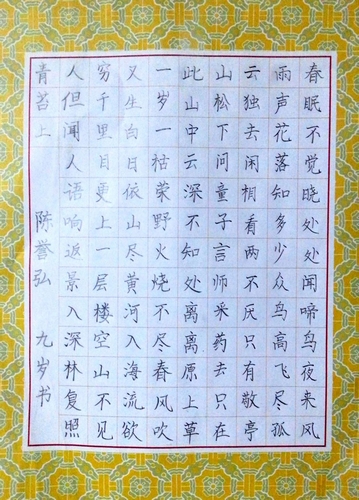 春眠不觉晓处处闻啼鸟夜来风
雨声花落知多少众鸟高飞尽孤
云独去闲相看两不厌只有敬亭
山松下问童子言师采药去只在
此山中云深不知处离离原上草
一岁一枯荣野火烧不尽春风吹
又生白日依山尽黄河入海流欲
穷千里目更上一层楼空山不见
人但闻人语响返景入深林复照
青苔上 陈誉弘 九岁书